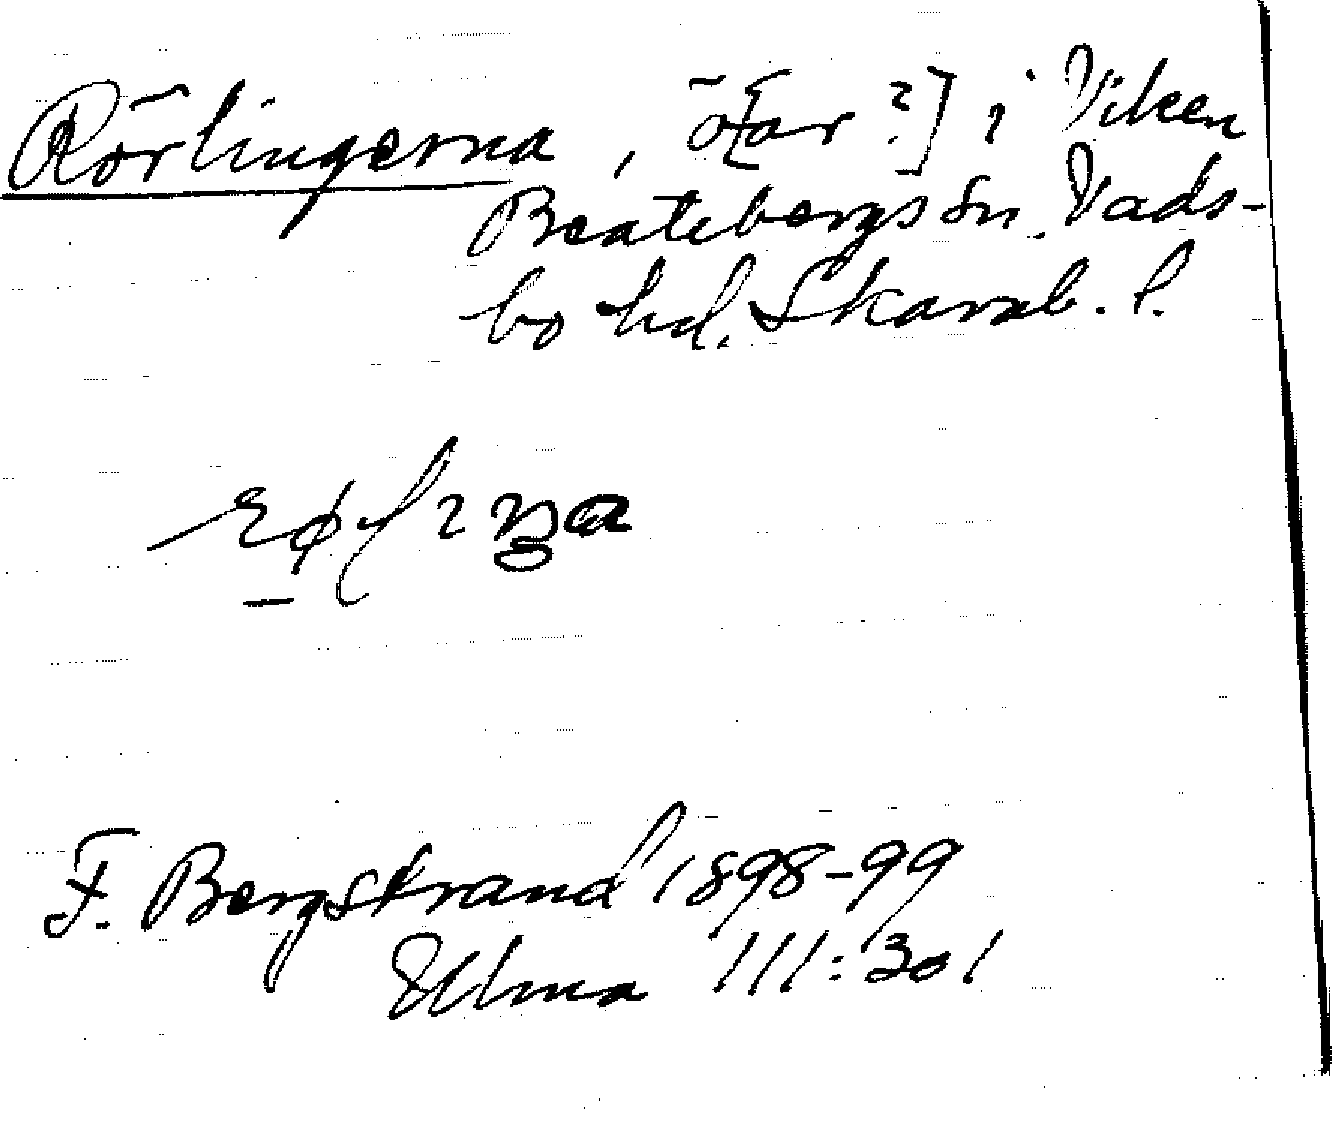 Rörlingerna, ö[ar?] i Viken
Beatebergs sn. Vads-
bo hd. Skarab. l.
F. Bergstrand 1898-99
Ulma 111:301